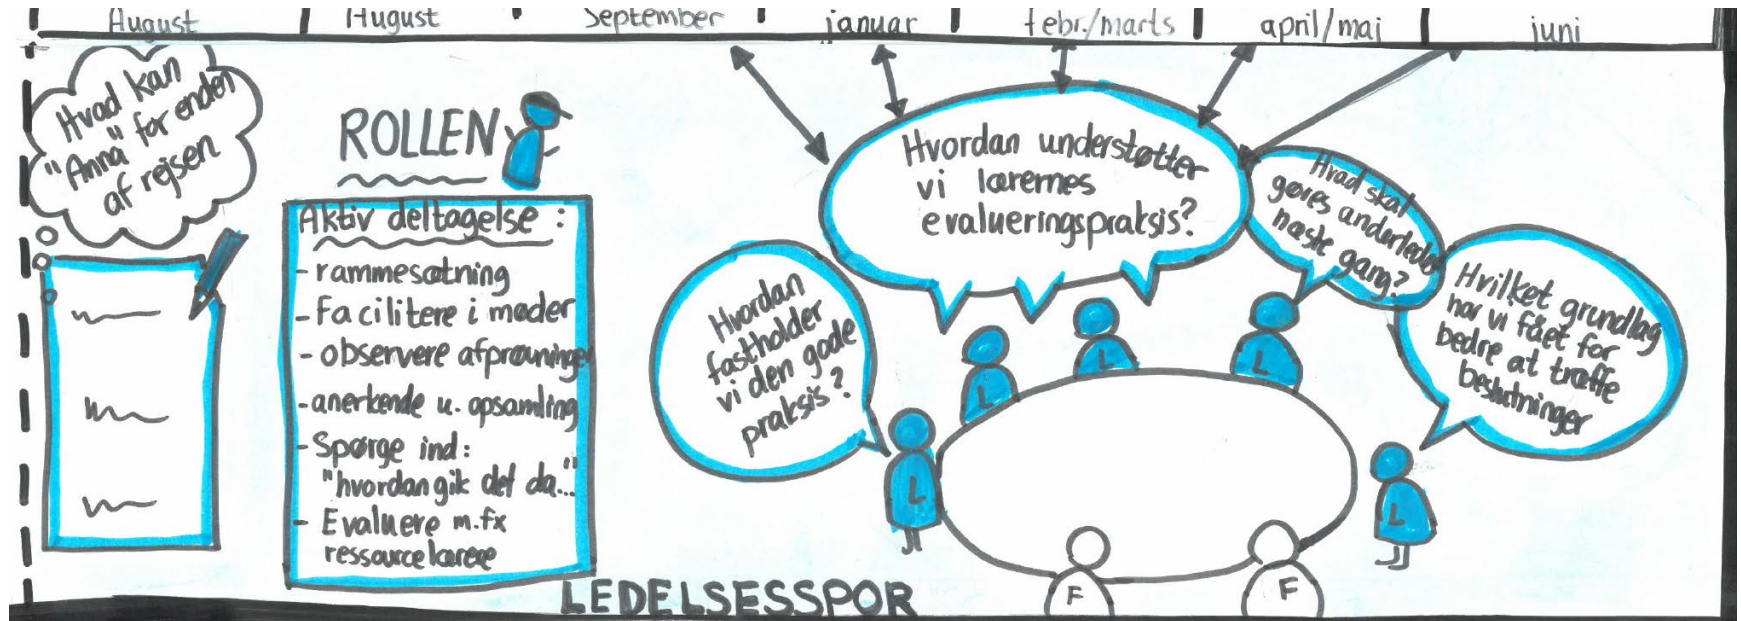 August
August
September
januar
febr./marts
april/maj
juni
Hvad kan
"Anna" for enden
af rejsen
ROLLEN
Aktiv deltagelse :
- rammesætning
- Facilitere i møder
- observere afprøvninger
- anerkende u. opsamling
- Spørge ind:
"hvordan gik det da..."
- Evaluere m.fx
ressourcelærere
Hvordan
fastholder
vi den gode
praksis?
Hvordan understøtter
vi lærernes
evalueringspraksis?
Hvad skal
gøres anderledes
næste gang?
Hvilket grundlag
har vi fået for
bedre at træffe
beslutninger
L
L
L
L
L
F
F
LEDELSESSPOR